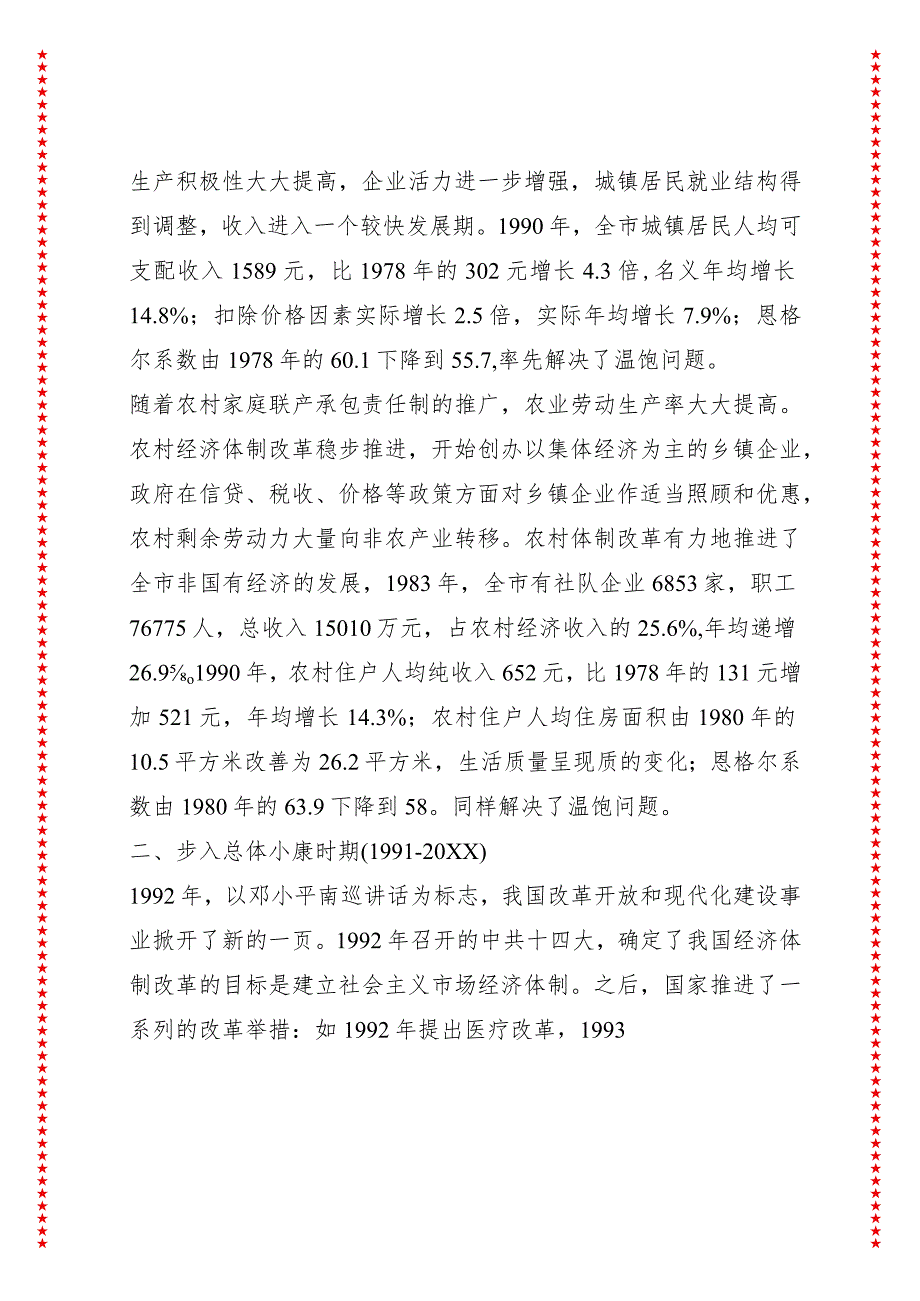 生产积极性大大提高，企业活力进一步增强，城镇居民就业结构得
到调整，收入进入一个较快发展期。1990 年，全市城镇居民人均可
支配收入 1589 元，比 1978 年的 302 元增长 4.3 倍,名义年均增长
14.8%；扣除价格因素实际增长 2.5 倍，实际年均增长 7.9%；恩格
尔系数由 1978 年的 60.1 下降到 55.7,率先解决了温饱问题。
随着农村家庭联产承包责任制的推广，农业劳动生产率大大提高。
农村经济体制改革稳步推进，开始创办以集体经济为主的乡镇企业，
政府在信贷、税收、价格等政策方面对乡镇企业作适当照顾和优惠，
农村剩余劳动力大量向非农产业转移。农村体制改革有力地推进了
全市非国有经济的发展，1983 年，全市有社队企业 6853 家，职工
76775 人，总收入 15010 万元，占农村经济收入的 25.6%,年均递增
26.9⅝₀1990 年，农村住户人均纯收入 652 元，比 1978 年的 131 元增
加 521 元，年均增长 14.3%；农村住户人均住房面积由 1980 年的
10.5 平方米改善为 26.2 平方米，生活质量呈现质的变化；恩格尔系
数由 1980 年的 63.9 下降到 58。同样解决了温饱问题。
二、步入总体小康时期(1991-20XX)
1992 年，以邓小平南巡讲话为标志，我国改革开放和现代化建设事
业掀开了新的一页。1992 年召开的中共十四大，确定了我国经济体
制改革的目标是建立社会主义市场经济体制。之后，国家推进了一
系列的改革举措：如 1992 年提出医疗改革，1993